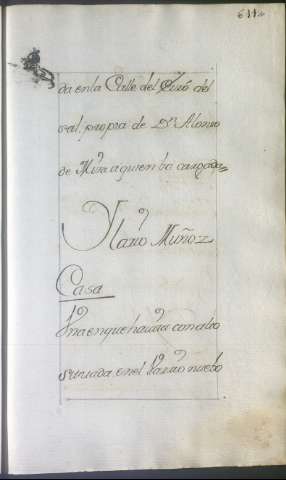 611
da en la Calle del del
ral, propia de Dn. Alonso
de Mira a quien ba cargada
Ylario Muñoz
Casa
Una en que havita con alto
situada en el varrio nuebo